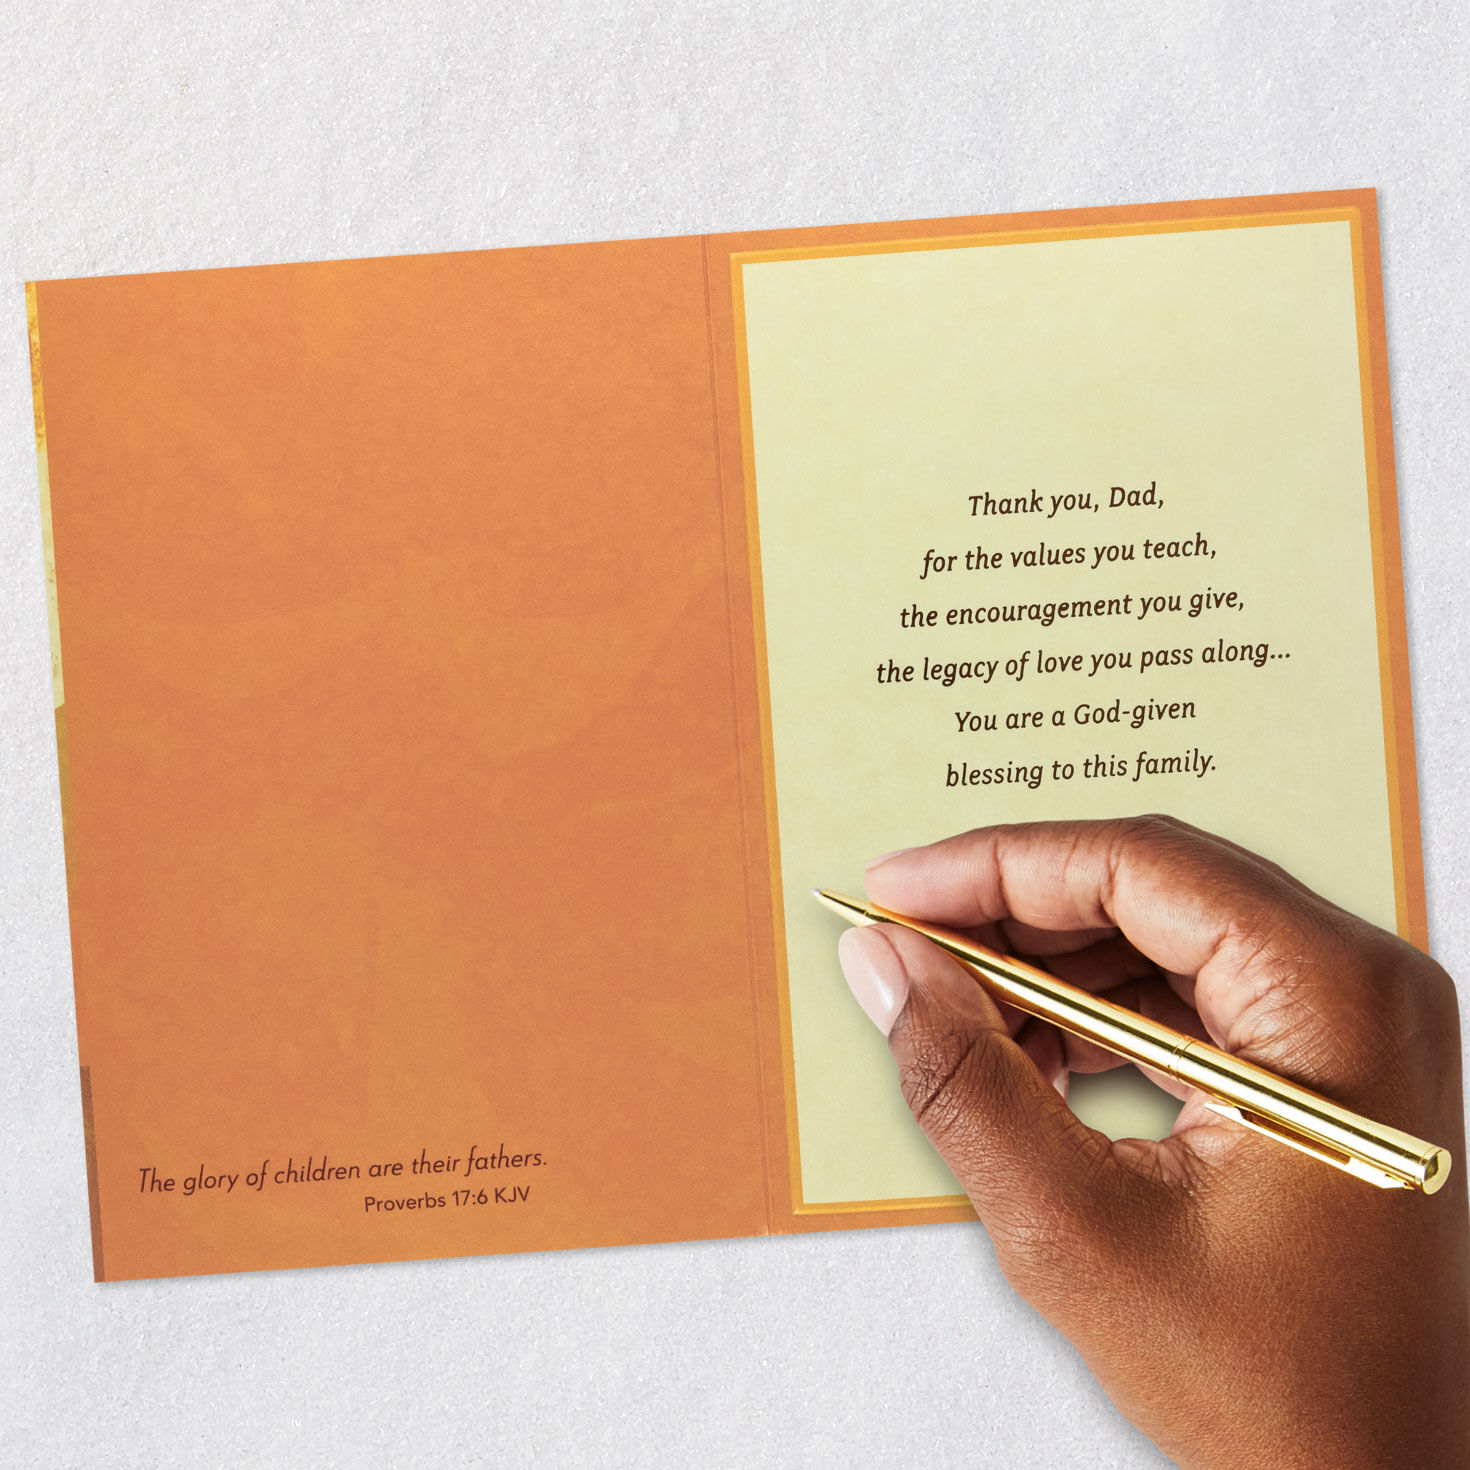 The glory of children are their fathers.
Proverbs 17:6 KJV
Thank you, Dad,
for the values you teach,
the encouragement you give,
the legacy of love you pass along...
You are a God-given
blessing to this family.